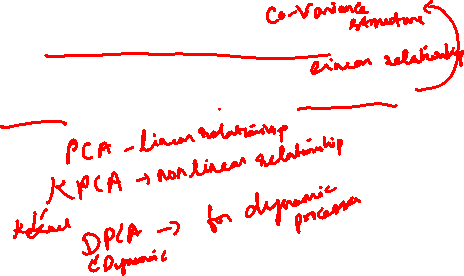 Co-Variance
structure
linear relationship
PCA - linear relationship
KPCA → non linear relationship
Kernel
DPCA → for dynamic
processes
Dynamic